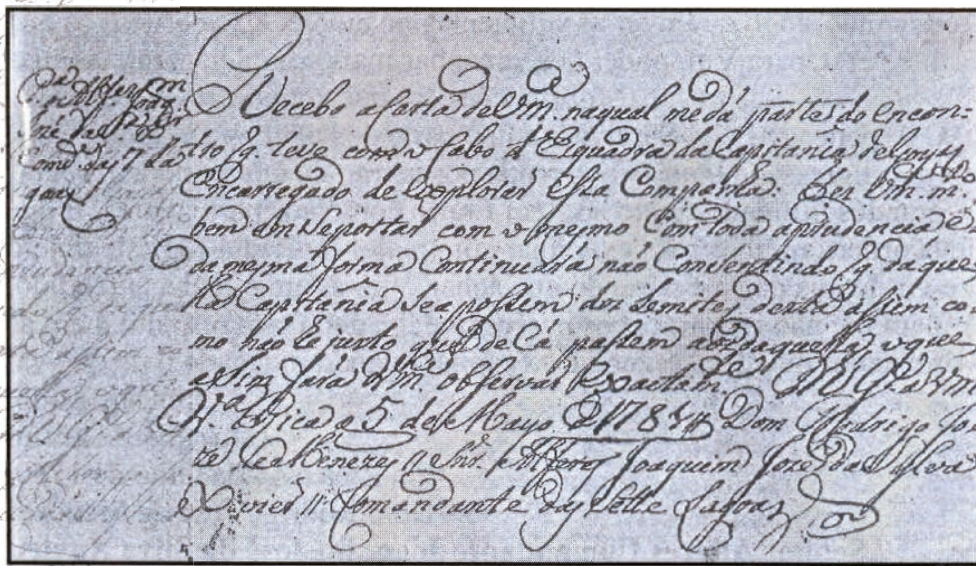 Pª o Alferes Joaqm
José da Sª Xer
Comde das 7 La
goas
Recebo a Carta de Vm. na qual me dá parte do encon-
tro q. teve com o Cabo d' Esquadra da Capitania de Goyas
Encarregado de explorar esta Companha.
bem em se portar com o mesmo Com toda a prudencia e
da mesma forma Continuará não Consentindo q. daque
la Capitania se apossem dos Lemites desta assim co
mo não he justo que de Cá passem aos daquella o que
assim fará Vm.ce observar exactam.te D.s G.e a Vm
V.ª Rica a 5 de Mayo de 1781 // Dom Rodrigo Jo
zé de Menezes // Snr. Alferes Joaquim Jozé da Sylva
Xavier // Comandante das Sette Lagoas